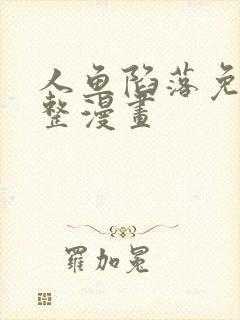 人鱼陷落免
整漫畫
羅加冕